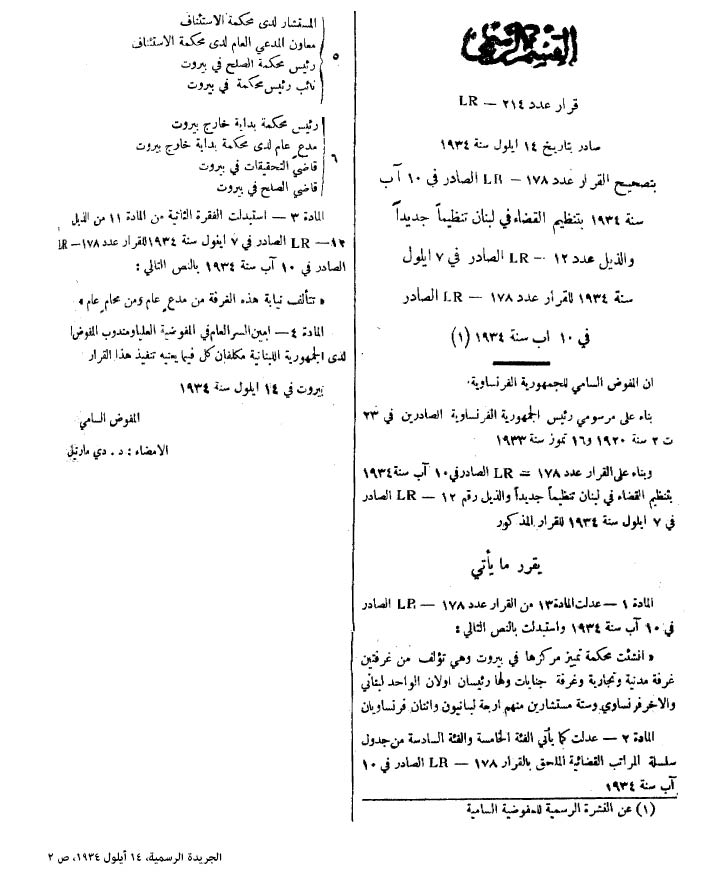 القسم الرسمي
قرار عدد ٢١٤ — LR
صادر بتاريخ ١٤ ايلول سنة ١٩٣٤
بتصحيح القرار عدد ١٧٨ — LR الصادر في ١٠ آب
سنة ١٩٣٤ بتنظيم القضاء في لبنان تنظيماً جديداً
والذيل عدد ١٢ — LR الصادر في ٧ ايلول
سنة ١٩٣٤ للقرار عدد ١٧٨ — LR الصادر
في ١٠ اب سنة ١٩٣٤ (١)
ان المفوض السامي للجمهورية الفرنساوية.
بناء على مرسومي رئيس الجمهورية الفرنساوية الصادرين في ٢٣
ت ٢ سنة ١٩٢٠ و١٦ تموز سنة ١٩٣٣
وبناء على القرار عدد ١٧٨ = LR الصادر في ١٠ آب سنة ١٩٣٤
بتنظيم القضاء في لبنان تنظيماً جديداً والذيل رقم ١٢ — LR الصادر
في ٧ ايلول سنة ١٩٣٤ للقرار المذكور
يقرر ما يأتي
المادة ١ — عدلت المادة ١٣ من القرار عدد ١٧٨ — LR الصادر
في ١٠ آب سنة ١٩٣٤ واستبدلت بالنص التالي :
« انشئت محكمة تمييز مركزها في بيروت وهي تؤلف من غرفتين
غرفة مدنية وتجارية وغرفة جنايات ولها رئيسان اولان الواحد لبناني
والاخر فرنساوي وستة مستشارين منهم اربعة لبنانيون واثنان فرنساويان
المادة ٢ — عدلت كما يأتي الفئة الخامسة والفئة السادسة من جدول
سلسلة المراتب القضائية الملحق بالقرار ١٧٨ — LR الصادر في ١٠
آب سنة ١٩٣٤
(١) عن النشرة الرسمية للمفوضية السامية
المستشار لدى محكمة الاستئناف
معاون المدعي العام لدى محكمة الاستئناف
٥
رئيس محكمة الصلح في بيروت
نائب رئيس محكمة في بيروت
رئيس محكمة بداية خارج بيروت
مدع عام لدى محكمة بداية خارج بيروت
٦
قاضي التحقيقات في بيروت
قاضي الصلح في بيروت
المادة ٣ — استبدلت الفقرة الثانية من المادة ١١ من الذيل
١٢ — LR الصادر في ٧ ايلول سنة ١٩٣٤ للقرار عدد ١٧٨ — LR
الصادر في ١٠ آب سنة ١٩٣٤ بالنص التالي :
« تتألف نيابة هذه الغرفة من مدع عام ومن محام عام »
المادة ٤ — امين السر العام في المفوضية العليا ومندوب المفوض
لدى الجمهورية اللبنانية مكلفان كل فيما يعنيه تنفيذ هذا القرار
بيروت في ١٤ ايلول سنة ١٩٣٤
المفوض السامي
الامضاء : د . دي مارتيل
الجريدة الرسمية، ١٤ أيلول ١٩٣٤، ص ٢